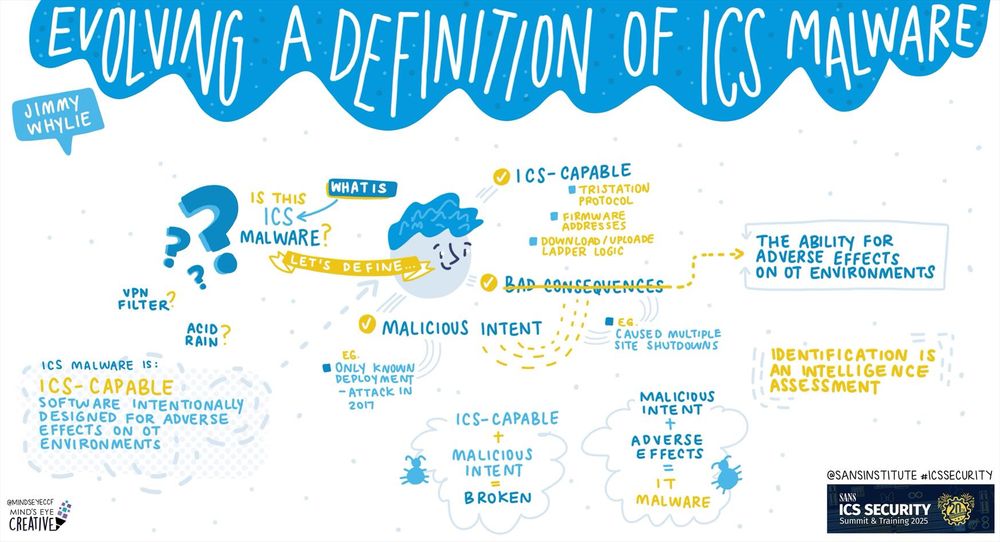 EVOLVING A DEFINITION OF ICS MALWARE
JIMMY
WHYLIE
WHAT IS
IS THIS
ICS
MALWARE?
LET'S DEFINE...
???
VPN
FILTER?
ACID
RAIN?
ICS-CAPABLE
TRISTATION
PROTOCOL
FIRMWARE
ADDRESSES
DOWNLOAD/UPLOADE
LADDER LOGIC
BAD CONSEQUENCES
EG.
CAUSED MULTIPLE
SITE SHUTDOWNS
THE ABILITY FOR
ADVERSE EFFECTS
ON OT ENVIRONMENTS
MALICIOUS INTENT
EG.
ONLY KNOWN
DEPLOYMENT
- ATTACK IN
2017
IDENTIFICATION IS
AN INTELLIGENCE
ASSESSMENT
ICS MALWARE IS:
ICS-CAPABLE
SOFTWARE INTENTIONALLY
DESIGNED FOR ADVERSE
EFFECTS ON OT
ENVIRONMENTS
ICS-CAPABLE
+
MALICIOUS
INTENT
=
BROKEN
MALICIOUS
INTENT
+
ADVERSE
EFFECTS
=
IT
MALWARE
@MINDSEYECCF
MIND'S EYE
CREATIVE
@SANSINSTITUTE #ICSSECURITY
SANS
ICS SECURITY
Summit & Training 2025
20